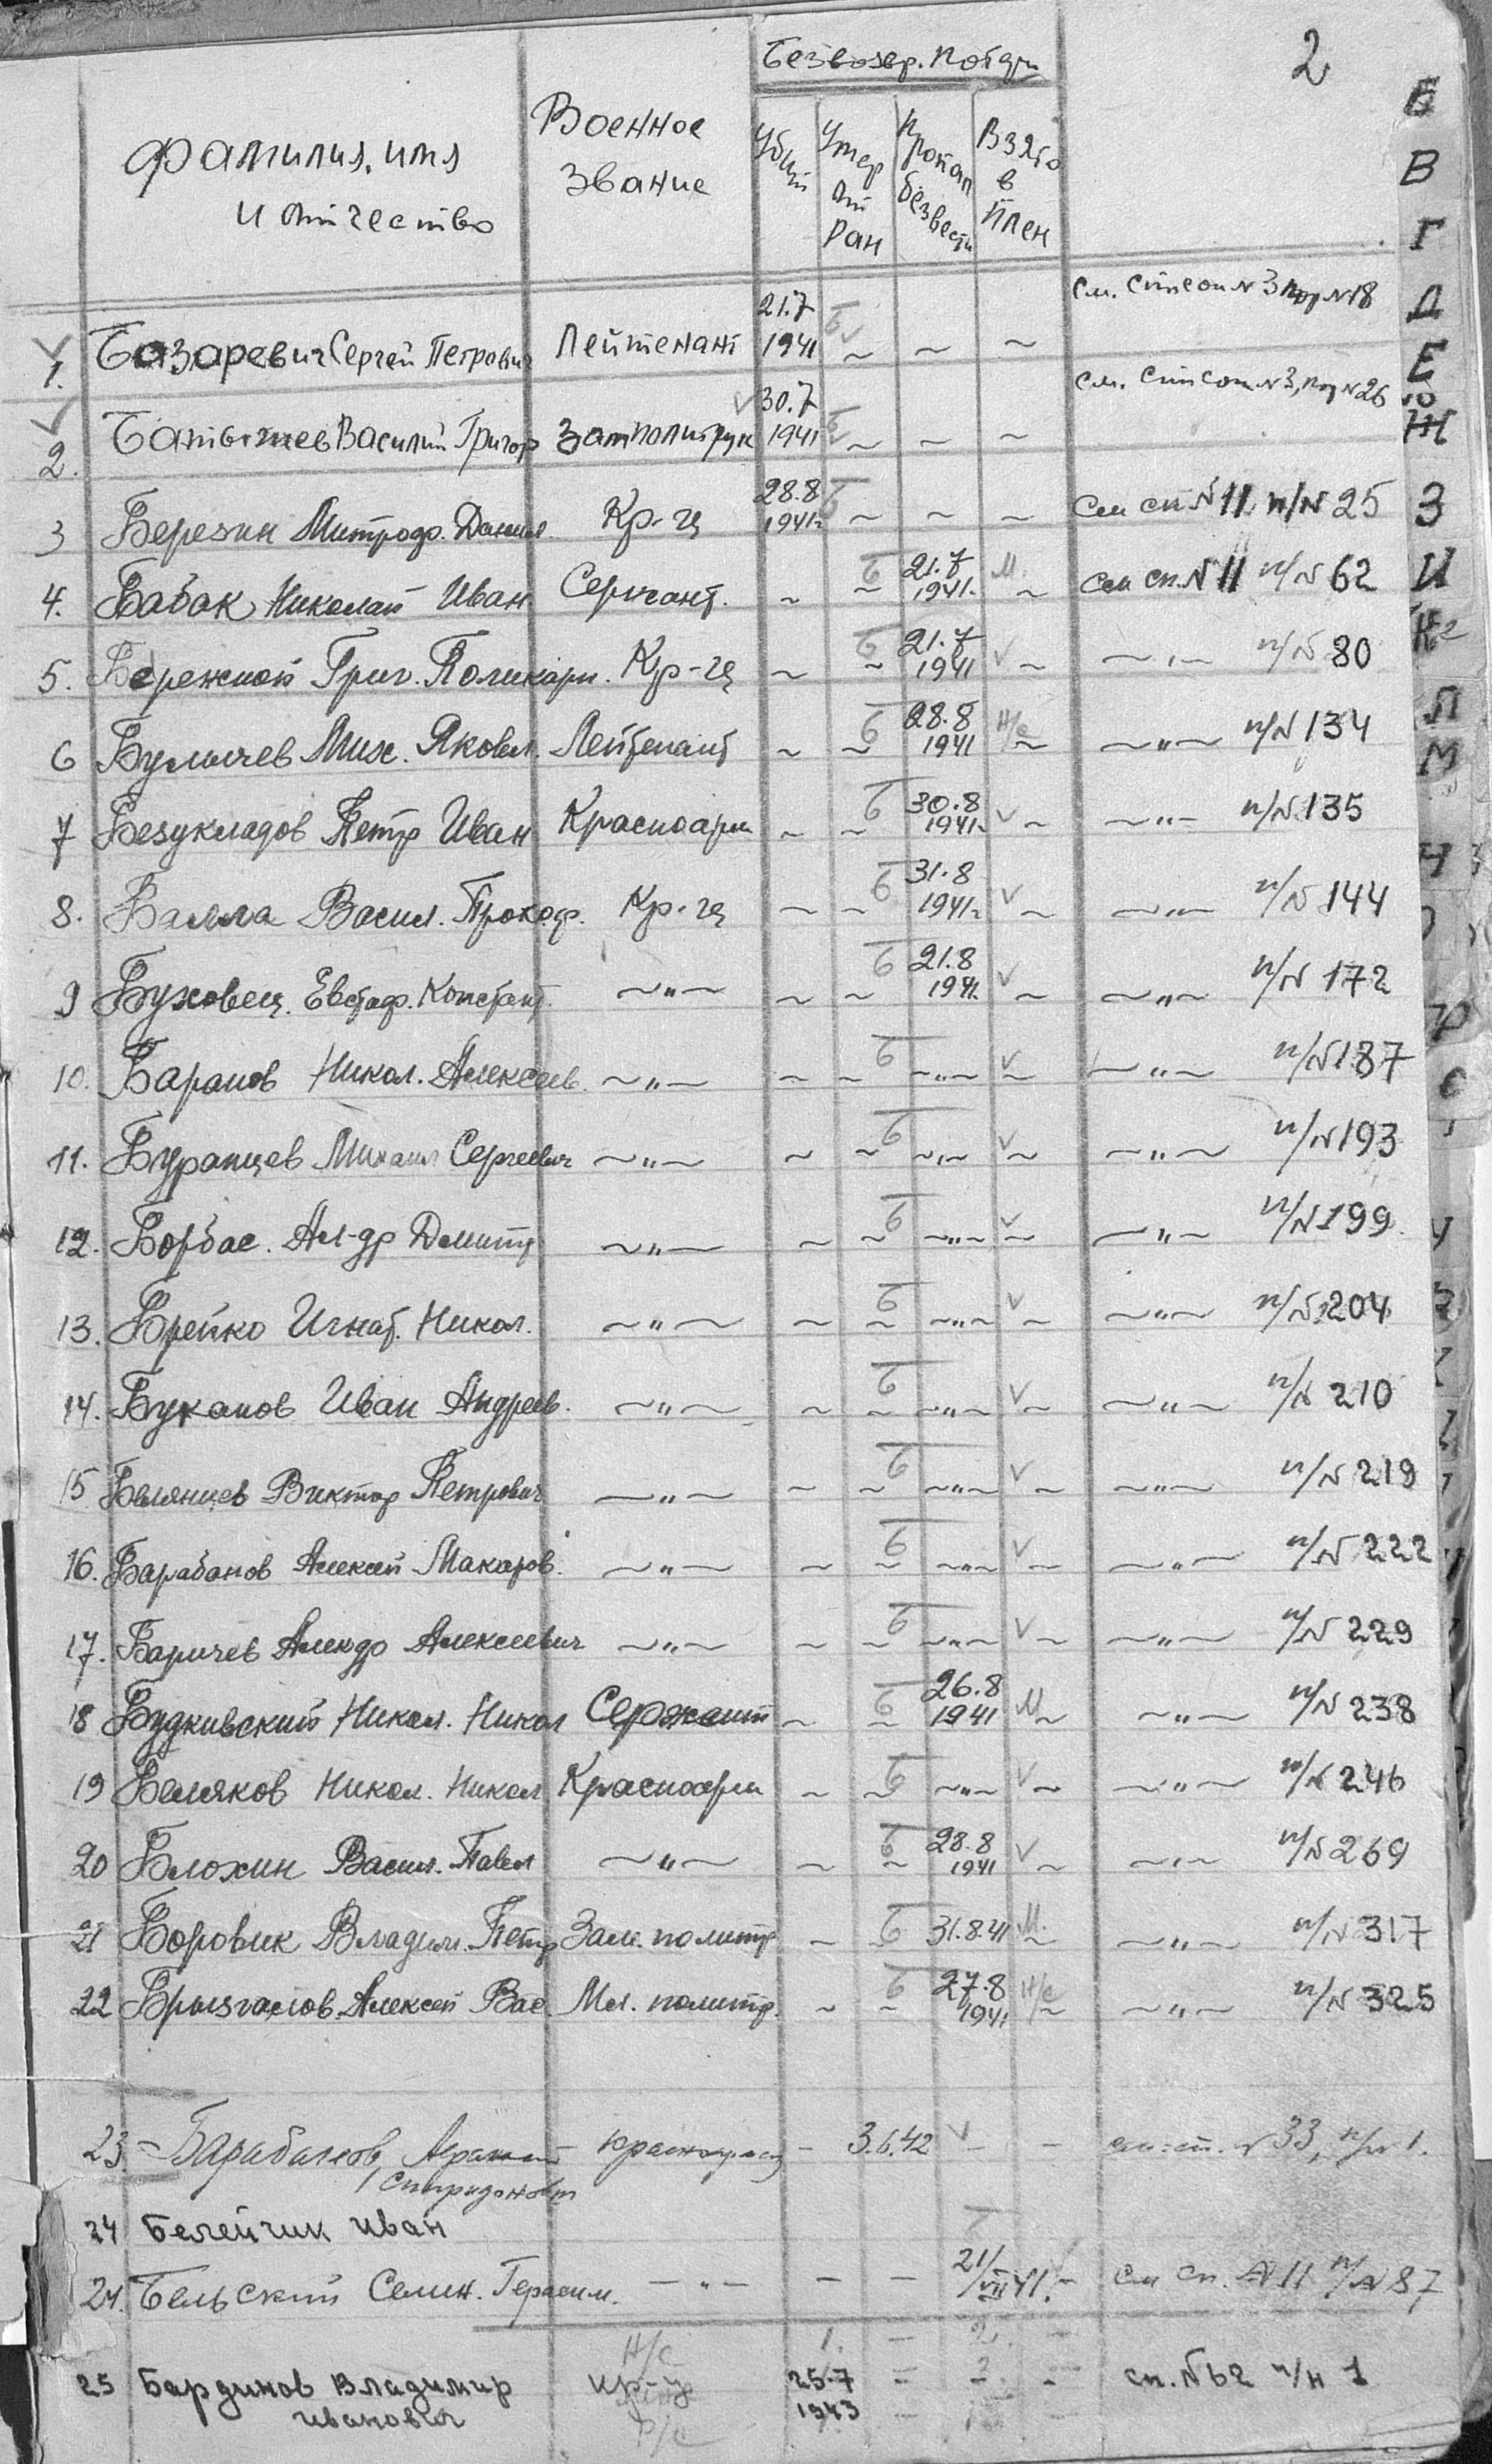 2
Безвозвр. потери
Фамилия, имя и отчество
Военное звание
Убит
Умер от ран
Пропал безвести
Взято в плен
см. список N 3 под N 18
1. Базаревич Сергей Петрович Лейтенант 21.7 1941 ~ ~ ~
см. список N 3, под N 26
2. Василий Григор Замполитрук 30.7 1941 ~ ~ ~
3 Березин Митроф. Данил. Кр-ец 28.8 1941г ~ ~ ~ см сп N 11 п/N 25
4. Бабак Николай Иван Сержант. ~ ~ 21.7 1941. М. ~ см сп. N 11 п/N 62
5. Бережной Григ. Поликарп. Кр-ец ~ ~ 21.7 1941 ~ ~"~ п/N 80
6 Булычев Мих. Яковл. Лейтенант ~ ~ 28.8 1941 Н/с ~ ~"~ п/N 134
7 Безукладов Петр Иван Красноарм ~ ~ 30.8 1941г ~ ~"~ п/N 135
8. Балла Васил. Прокоф. Кр-ец ~ ~ 31.8 1941г ~ ~"~ п/N 144
9 Буховец. Евстаф. Констант. ~"~ ~ ~ 21.8 1941г. ~ ~"~ п/N 172
10. Баранов Никол. Алексеев. ~"~ ~ ~ ~"~ ~ ~"~ п/N 187
11. Буранцев Михаил Сергеевич ~"~ ~ ~ ~"~ ~ ~"~ п/N 193
12. Борбас. Ал-др Дмитр ~"~ ~ ~ ~"~ ~ ~"~ п/N 199
13. Брейко Игнат. Никол. ~"~ ~ ~ ~"~ ~ ~"~ п/N 204
14. Буканов Иван Андреев. ~"~ ~ ~ ~"~ ~ ~"~ п/N 210
15 Белянцев Виктор Петрович ~"~ ~ ~ ~"~ ~ ~"~ п/N 219
16. Барабанов Алексей Макаров. ~"~ ~ ~ ~"~ ~ ~"~ п/N 222
17. Баричев Алекдр Алексеевич ~"~ ~ ~ ~"~ ~ ~"~ п/N 229
18 Будкивский Никол. Никол Сержант ~ ~ 26.8 1941 М ~ ~"~ п/N 238
19 Беляков Никол. Никол Красноарм ~ ~ ~"~ ~ ~"~ п/N 246
20 Блохин Васил. Павл ~"~ ~ ~ 28.8 1941 ~ ~"~ п/N 269
21 Боровик Владим. Петр Зам. политр ~ ~ 31.8.41 М. ~ ~"~ п/N 317
22 Брызгалов. Алексей Вас. Мл. политр. ~ ~ 27.8 1941 Н/с ~ ~"~ п/N 325
23. Барабанов, - 3.6.42 - - N 33, п/N 1.
Спиридонов
24 Белейчик иван
24. Бельский Семен. Герасим. —"— — — 21/VII 41. - см сп. N 11 п/N 87
Н/с 1. — 2. —
25 Бардинов Владимир кр-ц 25.7 1943 — — - сп. N 62 п/н 1
иванович
Р/с
Б
В
Г
Д
Е
Ж
З
И
К
Л
М
Н
Р
С